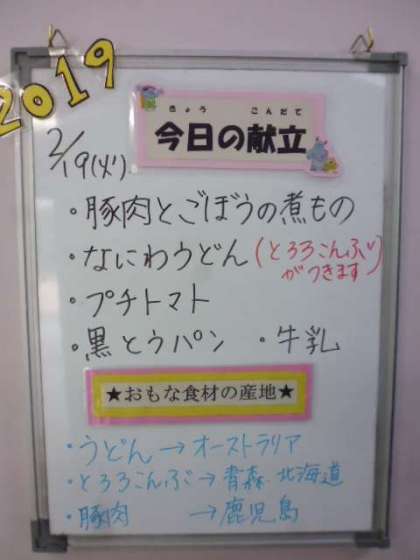 2019
きょう こんだて
今日の献立
2/19(火)
・豚肉とごぼうの煮もの
・なにわうどん(とろろこんぶ
がつきます)
・プチトマト
・黒とうパン ・牛乳
★おもな食材の産地★
・うどん→オーストラリア
・とろろこんぶ→青森・北海道
・豚肉 →鹿児島